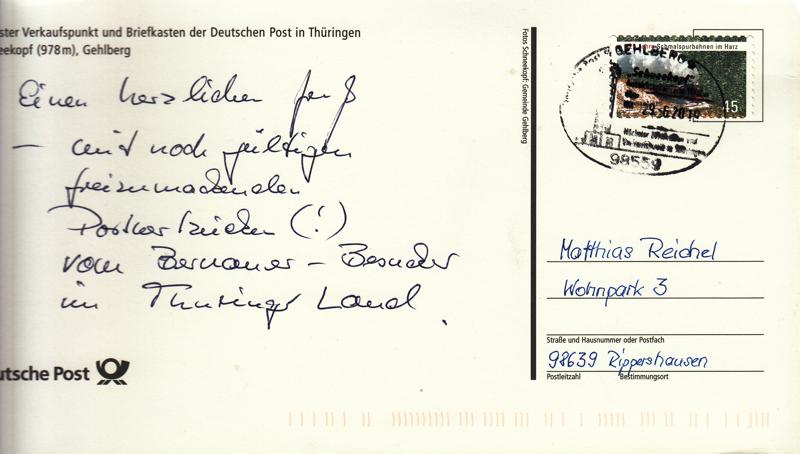 ster Verkaufspunkt und Briefkasten der Deutschen Post in Thüringen
eekopf (978m), Gehlberg
Einen herzlichen Gruß
– mit noch gültigen
freizumachenden
vom Bernauer – Besucher
im Thüringer Land.
utsche Post
Fotos Schneekopf: Gemeinde Gehlberg
Schmalspurbahnen im Harz
45
GEHLBERG
"Schneekopf"
98559
Matthias Reichel
Wohnpark 3
Straße und Hausnummer oder Postfach
98639 Rippershausen
Postleitzahl Bestimmungsort